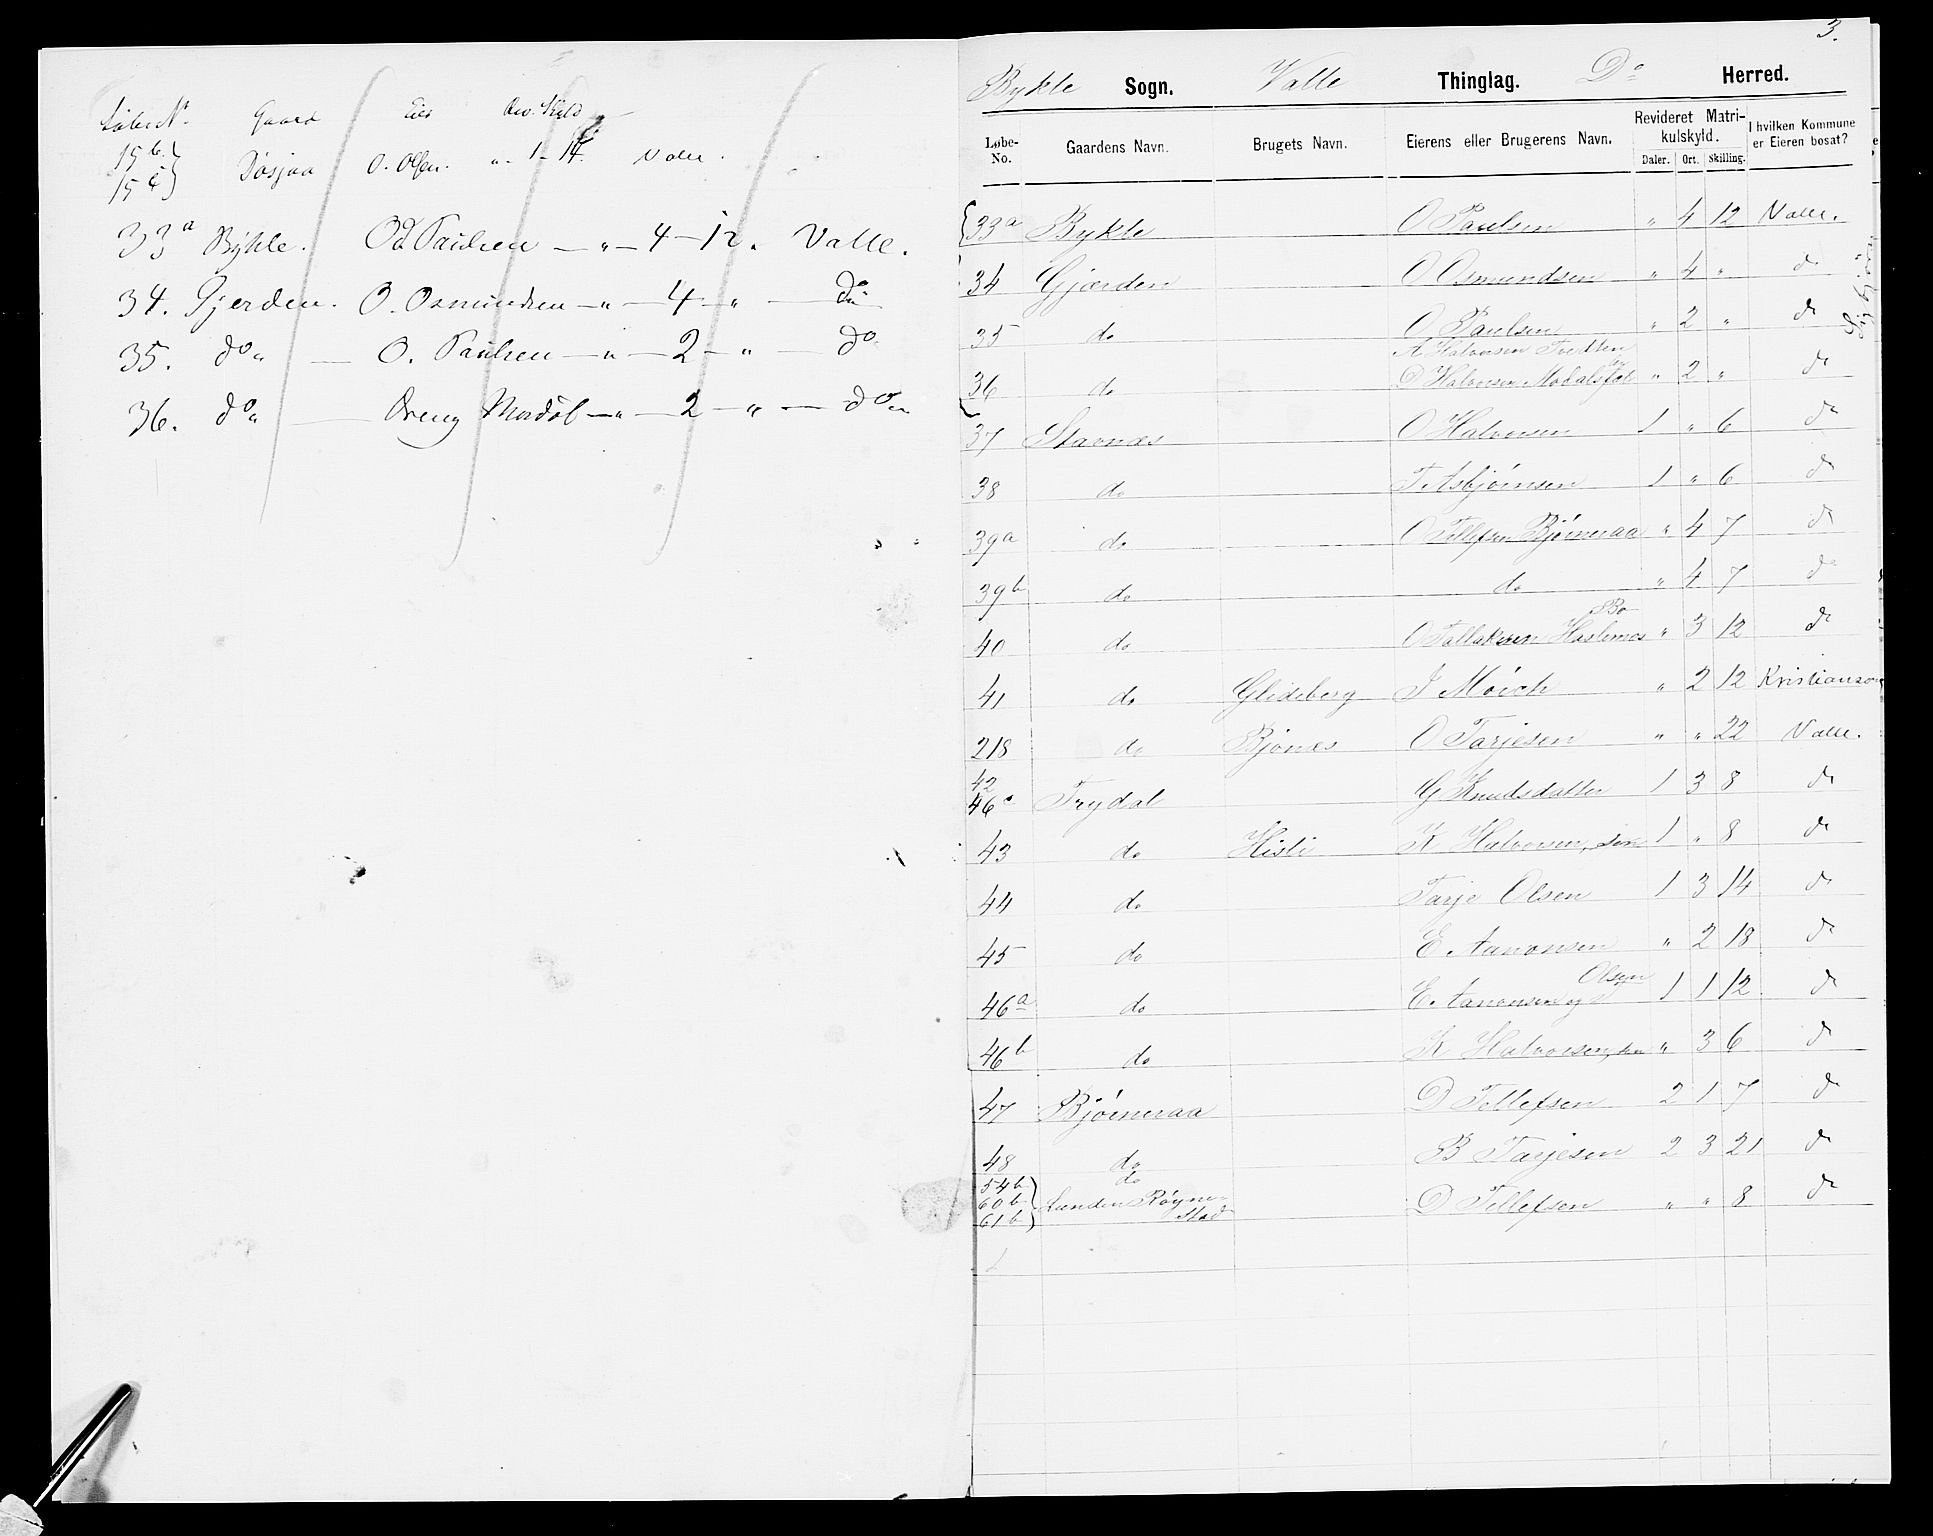 Løbe Nr. Gaard Eier Rev. Skyld
15 b. } Døsjaa O. Olsen. " - 1 - 14. Valle.
15 c }
33a Bykle. Od Paulsen — " — 4 — 12. Valle.
34. Gjerden. O. Osmundsen — " — 4 — " — do
35. do " — O. Paulsen — " — 2 — " — do
36. do " — Dreng — " — 2 — " — do "
3.
Bykle Sogn. Valle Thinglag. Do Herred.
Løbe-No. Gaardens Navn. Brugets Navn. Eierens eller Brugerens Navn. Revideret Matrikulskyld. I hvilken Kommune er Eieren bosat?
Daler. Ort. Skilling.
33a Bykle O Paulsen " 4 12 Valle.
34 Gjærden O Osmundsen " 4 " do
35 do O Paulsen " 2 " do
A Halvorsen Tvedten og
36 do D Halvorsen Mosdalsføl " 2 " do
37 Stavnæs O Halvorsen 1 " 6 do
38 do T Asbjörnsen 1 " 6 do
39a do O Tellefsen Björneraa " 4 7 do
39b do do " 4 7 do
40 do O Tallaksen Haslemos Bo " 3 12 do
41 do Glideberg J Mörch " 2 12 Kristianssand
218 do Bjönæs O Tarjesen " " 22 Valle.
42
46c Trydal G Knudsdatter 1 3 8 do
43 do Hisli K Halvorsen, sen 1 " 8 do
44 do Tarje Olsen 1 3 14 do
45 do E. Aanonsen " 2 18 do
46a do E. Aanonsen og Olsen 1 1 12 do
46b do K Halvorsen, sen " 3 6 do
47 Björneraa D Tellefsen 2 1 7 do
48 do B Tarjesen 2 3 21 do
54b do
60b } Lunden Röyne- D Tellefsen " " 8 do
61b stad